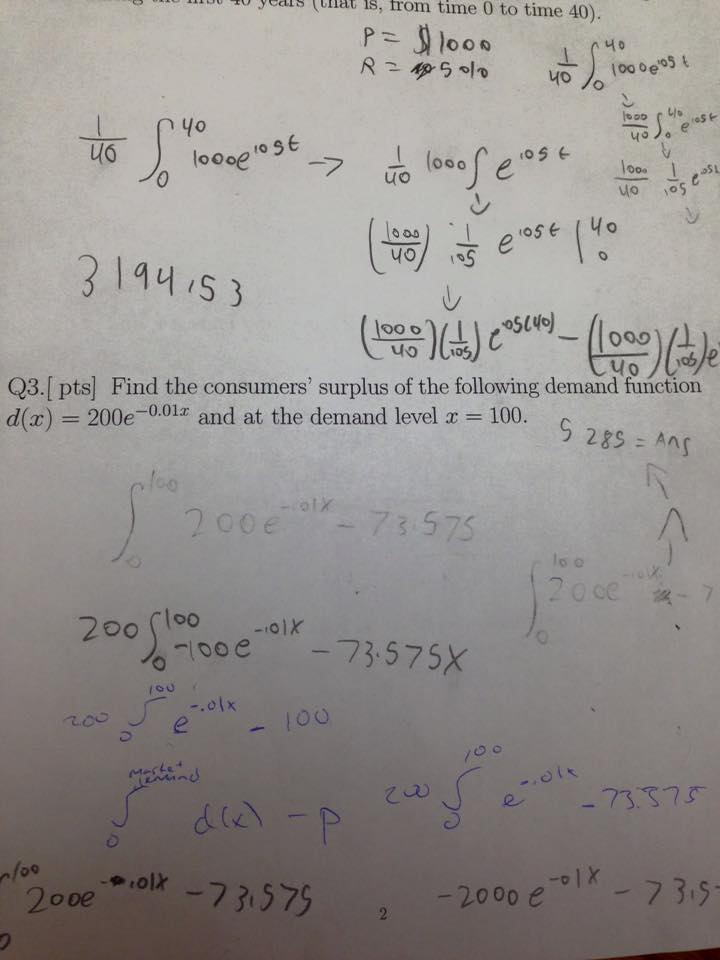 years (that is, from time 0 to time 40).
P = $1000
R = 5%
1/40 ∫₀⁴⁰ 1000e^.05t
1000/40 ∫₀⁴⁰ e^.05t
1000/40 1/.05 e^.05t
1/40 ∫₀⁴⁰ 1000e^.05t → 1/40 1000∫ e^.05t
(1000/40) · 1/.05 e^.05t |₀⁴⁰
3194.53
(1000/40)(1/.05) e^.05(40) − (1000/40)(1/.05)e
Q3.[ pts] Find the consumers' surplus of the following demand function
d(x) = 200e^−0.01x and at the demand level x = 100.
5285 = Ans
∫₀¹⁰⁰ 200e^-.01x − 73.575
∫₀¹⁰⁰ 200e^-.01x − 7
200 ∫₀¹⁰⁰ -100e^-.01x − 73.575X
200 ∫₀¹⁰⁰ e^-.01x − 100
∫₀^market demand d(x) − p
200 ∫₀¹⁰⁰ e^-.01x − 73.575
∫₀¹⁰⁰ 200e^-.01x − 73.575
-2000e^-.01x − 73.5
2